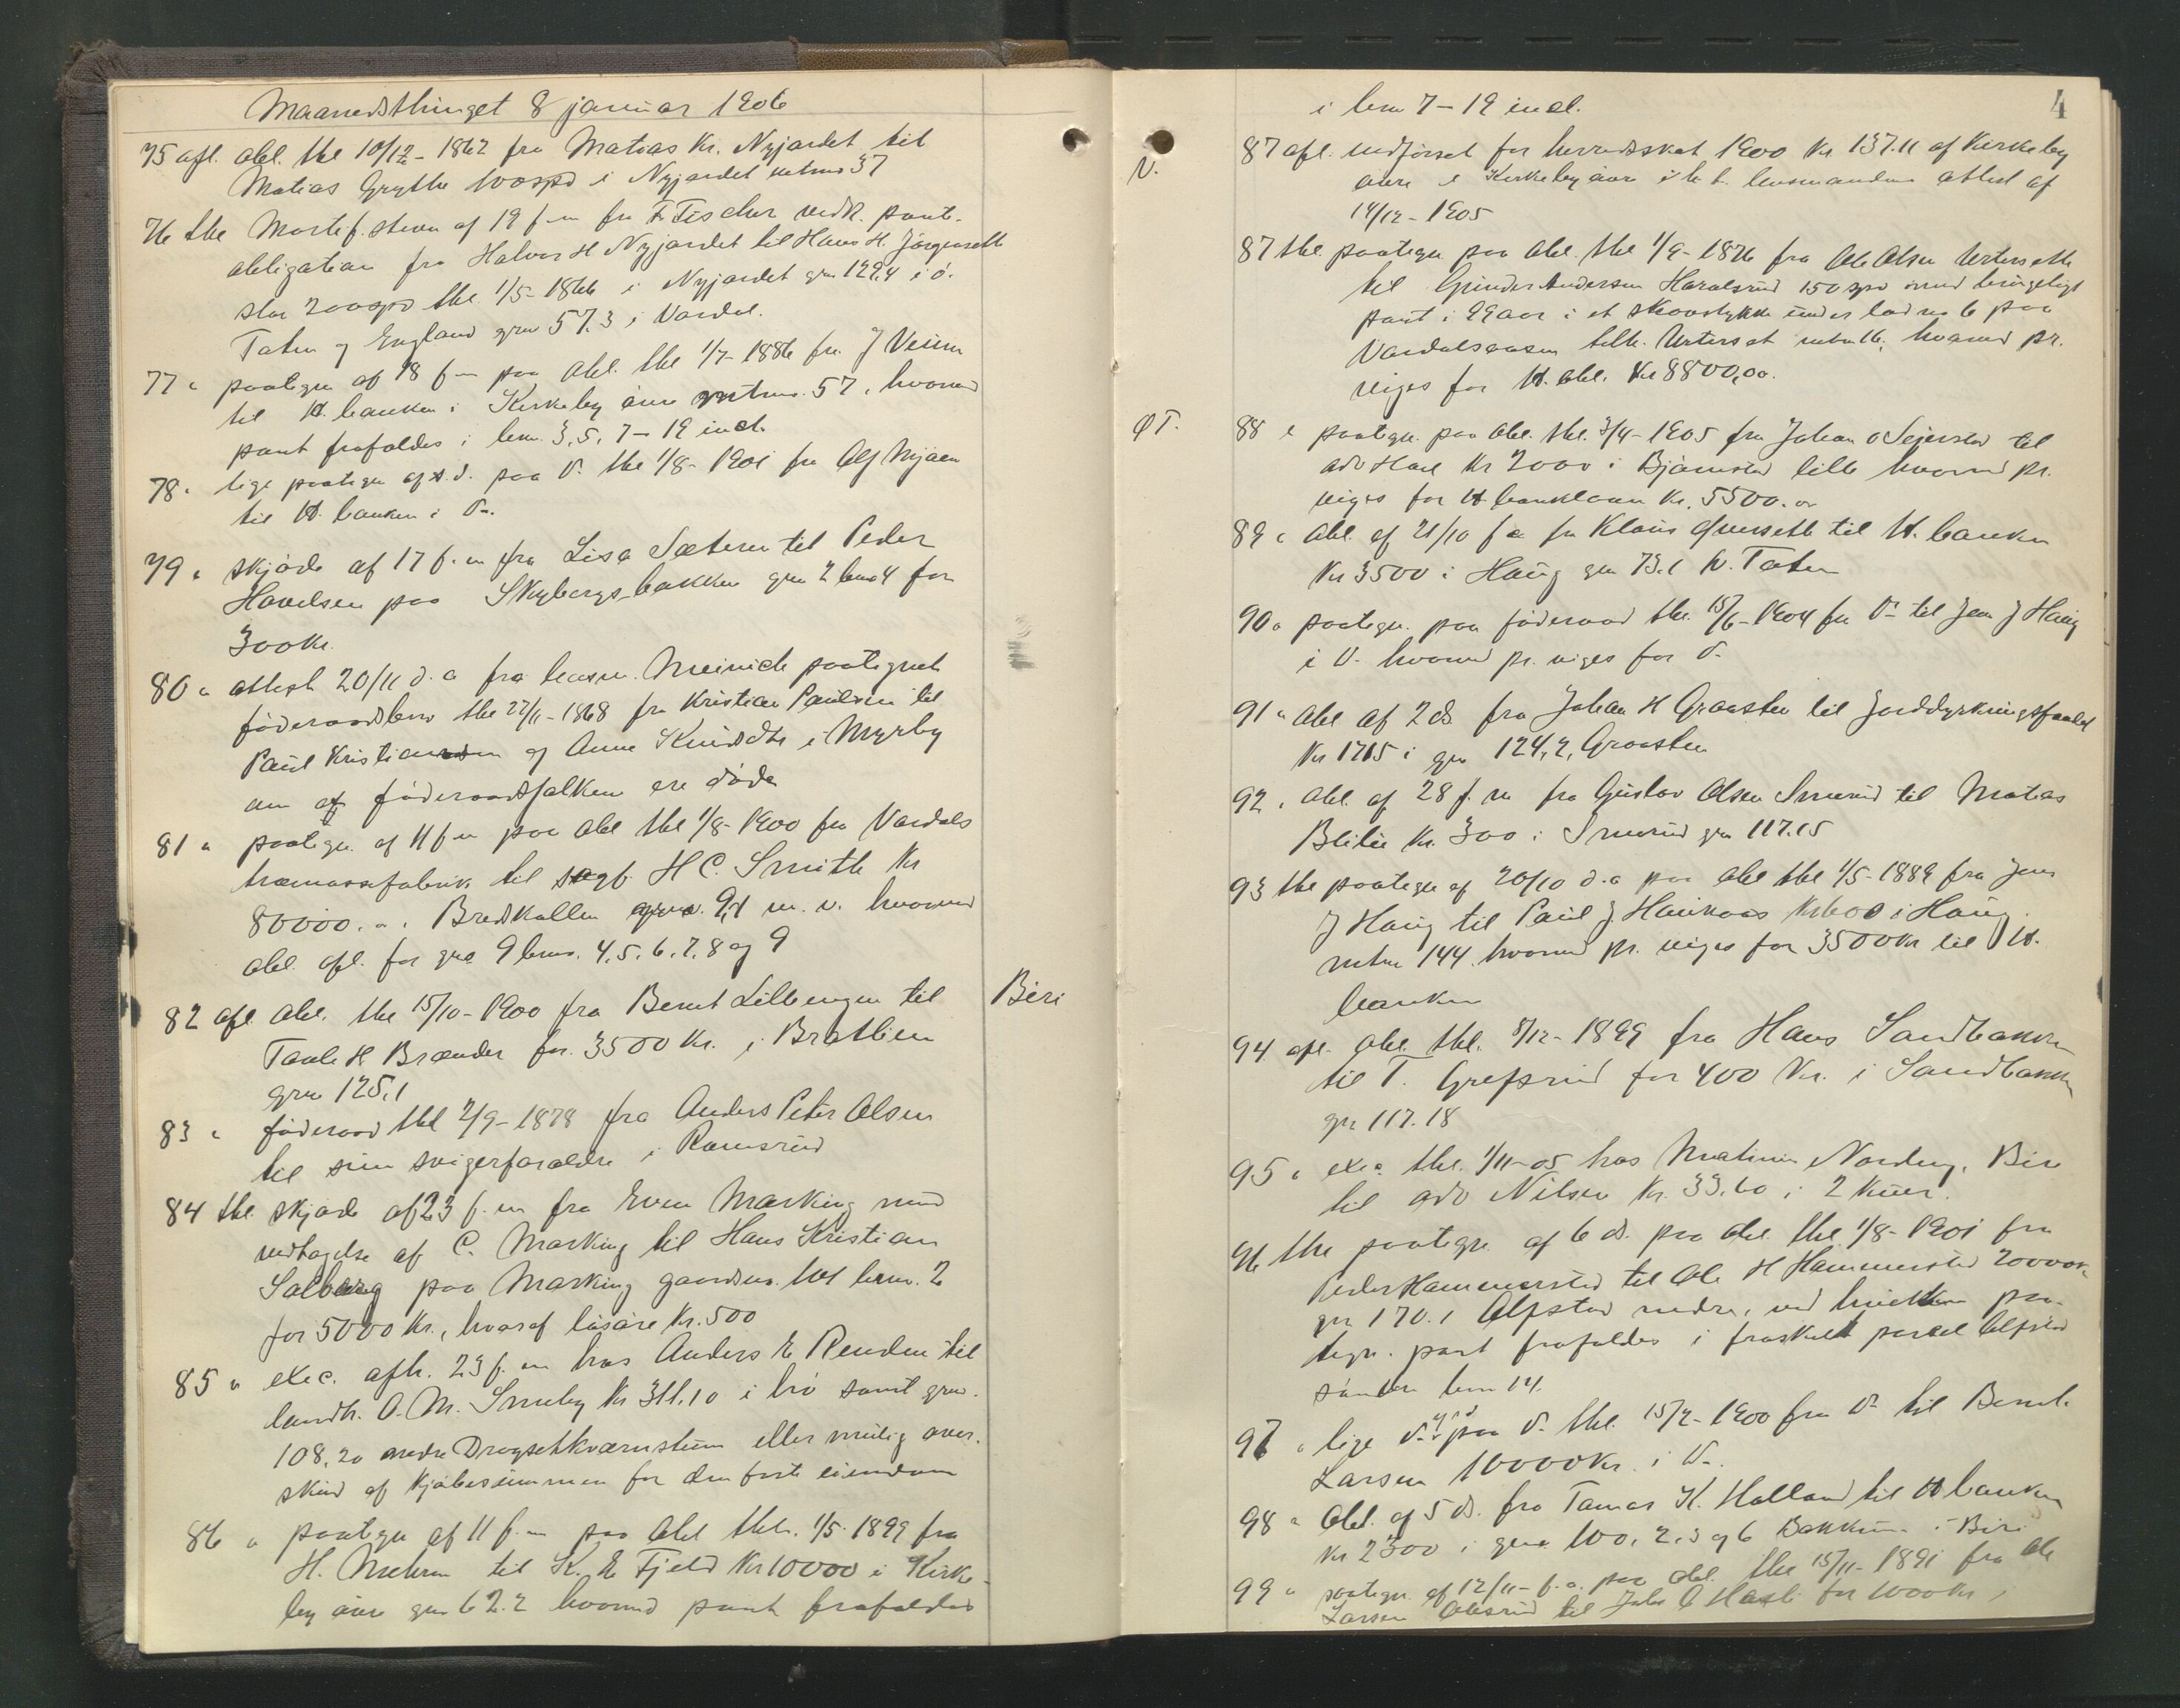 Maanedsthinget 8 januar 1906
75 afl. obl. thl 10/12-1862 fra Matias Kr. Nyjordet til
Matias Grythe 100 spd i Nyjordet mtrno 37
76 thl Mortif. steven af 19 f.m fra F. Fischer vedk. pant-
obligation fra Halvor H Nyjordet til Hans H. Jørgenseth
stor 200 spd thl. 1/5-1866 i Nyjordet gno 129,4 i ø.
Toten og England gno 57.3 i Vardal.
77 " paategn af 18 f-m paa obl. thl 1/7-1886 fra J Veum
til H. banken i Kirkeby øvre mtrno. 57, hvorved
pant frafaldes i brno. 3, 5, 7-19 incl.
78 " lige paategn af s.d. paa D. thl 1/8-1901 fra Alf Mjøen
til H. banken i D-.
79 " skjøde af 17 f.m fra Lisa Sæteren til Peder
Havelsen paa Skybergs-bakken gno 2 bno 4 for
300 kr.
80 " attest 20/11 d.a fra lensm. Meinich paategnet
føderaadsbrev thl 27/11-1868 fra Kristian Paulsen til
Paul Kristiansen og Anne Knudsdtr i Myrby
om at føderaadsfolkene ere døde
81 " paategn. af 11 f m paa obl thl 1/8-1900 fra Vardals
træmassefabrik til sagf. H C. Smith Kr
80000.- i Bredskallen gno. 9,1 m. v. hvorved
obl. afl. for gno 9 bno. 4, 5, 6, 7, 8 og 9
82 afl. obl. thl 15/10-1900 fra Bernt Lilleengen til
Biri
Taale H Brænder for 3500 Kr. i Bratlien
gno 125,1
83 " føderaad thl 2/9-1878 fra Anders Peter Olsen
til sine svigerforældre i Ramsrud
84 thl. skjøde af 23 f.m fra Even Marking med
vedtagelse af C. Marking til Hans Kristian
Solberg paa Marking gaardsno. 101 brno. 2
for 5000 Kr., hvoraf løsøre Kr. 500
85 " exec. afh. 23 f.m hos Anders E Renden til
landh. O. M. Smeby Kr 311.10 i bø samt gno.
108,20 nedre Drogsethkværnstuen eller mulig over-
skud af kjøbesummen for den første eiendom
86 " paategn af 11 f.m paa obl thl. 1/5-1899 fra
H. Mehren til K. E Fjeld Kr 10000 i Kirke-
by øvre gno 62.2 hvorved pant frafaldes
4
i brno 7-19 incl.
V.
87 afl. udførsel for herredsskat 1900 Kr 137.11 af Kirkeby
øvre i Kirkeby øvre lensmandens attest af
14/12-1905
87 thl. paategn paa obl. thl 1/9-1876 fra Ole Olsen
til Gunder Andersen Haralsrud 150 spd mod brugeligt
pant i 99 aar i et skovstykke under lod no 6 paa
Vardalsaasen tilh. mtrno 16, hvorved pr.
viges for H. obl. Kr 8800,00.
ØT.
88 " paategn. paa obl. thl. 3/4-1905 fra Johan O Sejersted til
adv Hoel Kr 2000 i Bjørnstad lille hvorved pr.
viges for H banklaan Kr. 5500.00
89 " obl. af 21/10 f a fra Klaus til H. banken
Kr 3500 i Haug gno 73.1 V. Toten
90 " paategn. paa føderaad thl. 15/6-1904 fra D- til Jens J Haug
i D. hvorved pr. viges for D-
91 " obl af 2 ds fra Johan H Graasten til Jorddyrkningsfondet
Kr 1715 i gno 124,2, Graasten
92 " obl. af 28 f. m fra Gustav Olsen Smerud til Matias
Blilie Kr. 300 i Smerud gno 117.15
93 thl paategn af 20/10 d.a paa obl thl 1/5-1889 fra Jens
J Haug til Paul J. Haukaas Kr 600 i Haug
mtrno 144. hvorved pr. viges for 3500 Kr til H.
banken
94 afl. obl. thl. 8/12-1899 fra Hans Sandbakken
til T. Grefsrud for 400 Kr. i Sandbakken
gno 117.18
95 " exec. thl. 1/11-05 hos Martinus Nordeng, Biri
til adv Nilsen Kr. 33.60 i 2 kuer.
96 thl paategn. af 6 ds. paa obl. thl. 1/8-1901 fra
Peder Hammerstad til Ole H Hammerstad 20000 Kr
gno 170.1 Alfstad nedre, ved hvilken paa-
tegn. pant frafaldes i fraskilt parcel Alfstad
søndre brno 14.
97 " lige paa D. thl. 15/2-1900 fra D- til Bernt
Larsen 10000 Kr. i D-.
98 " obl. af 5 ds. fra Tomas K. Holland til H banken
Kr 2300 i gno 100, 2, 3 og 6 Bakken i Biri
99 " paategn. af 12/11-f.a. paa obl. thl 15/11-1891 fra Ole
Larsen Olesrud til Johs O Hasli for 1000 Kr i